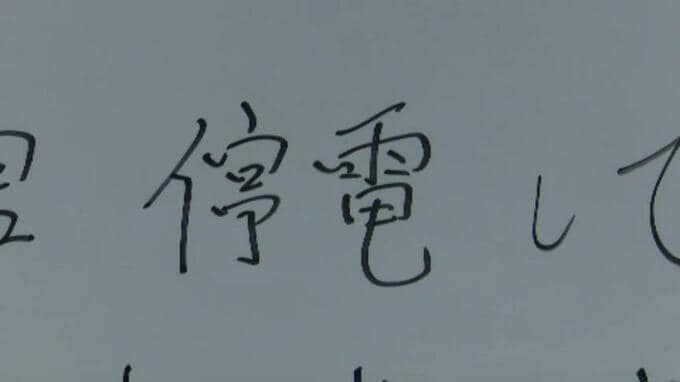 停電して